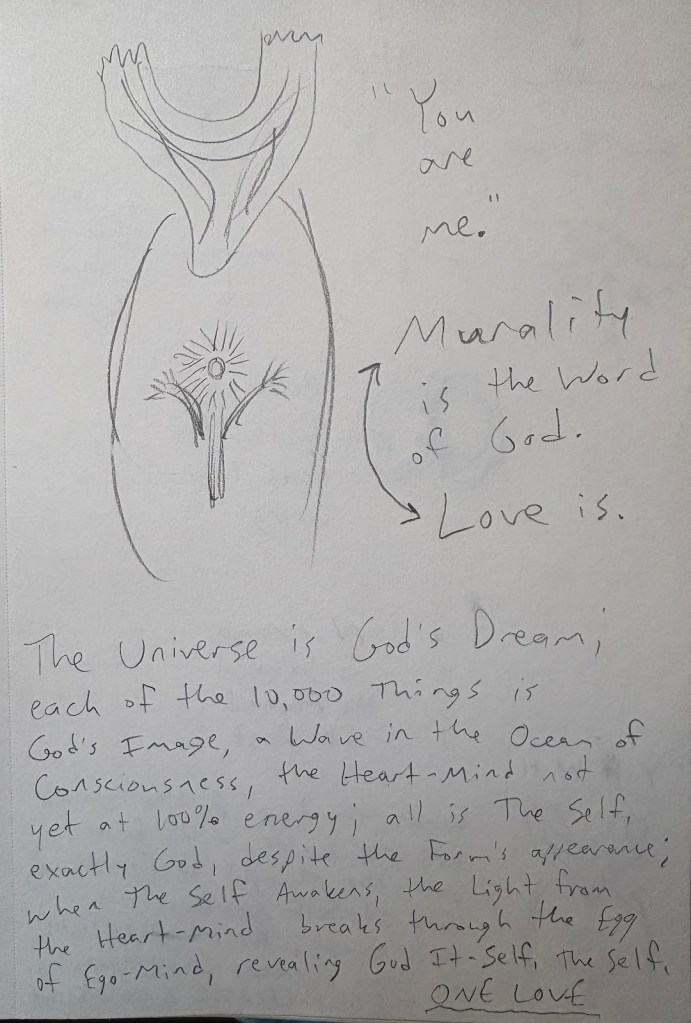 "You
are
me."
Murality
is the Word
of God.
Love is.
The Universe is God's Dream;
each of the 10,000 Things is
God's Image, a Wave in the Ocean of
Consciousness, the Heart-Mind not
yet at 100% energy; all is The Self,
exactly God, despite the Form's appearance;
when The Self Awakens, the Light from
the Heart-Mind breaks through the Egg
of Ego-Mind, revealing God It-Self, The Self.
ONE LOVE